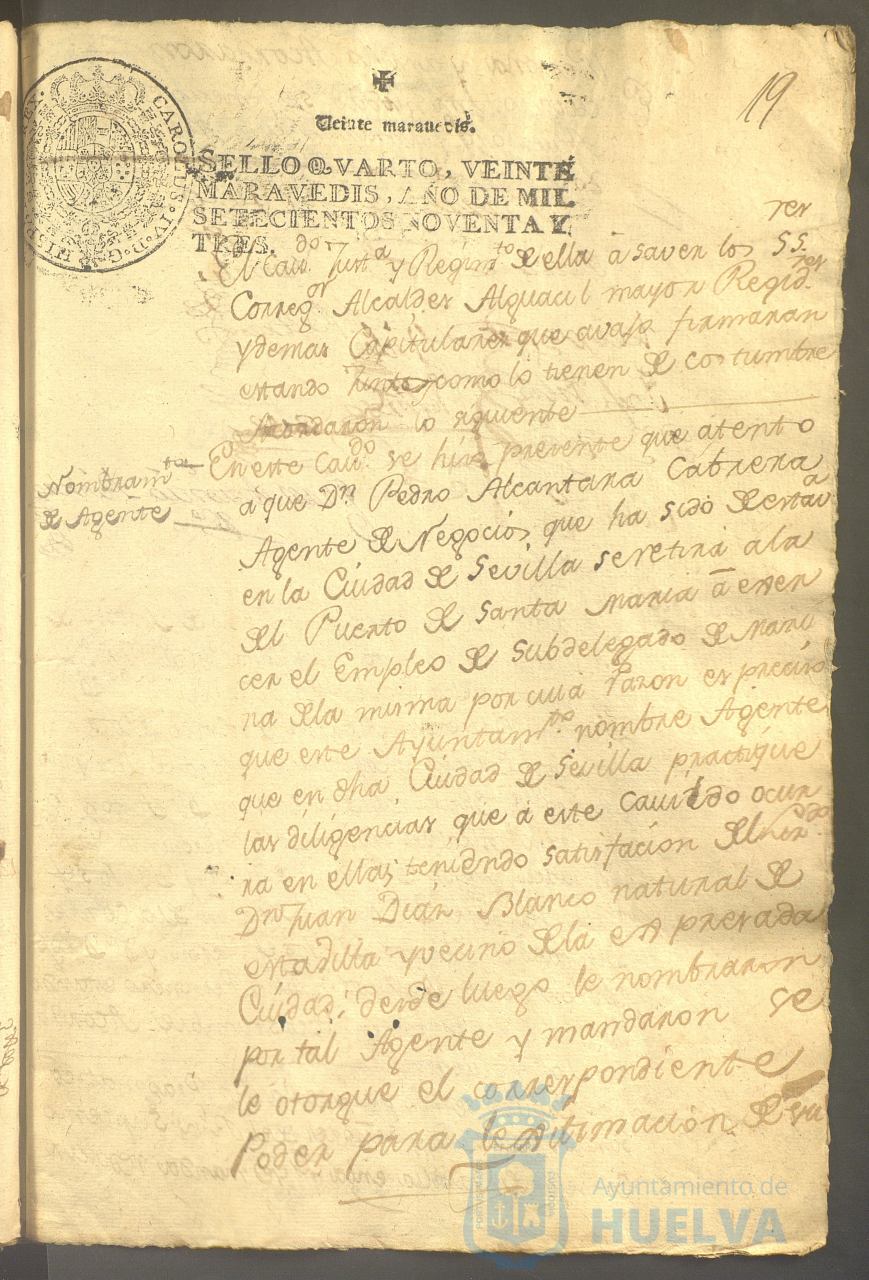 19
Veinte maravedis.
SELLO QVARTO, VEINTE
MARAVEDIS, AÑO DE MIL
SETECIENTOS NOVENTA Y
TRES.
CAROLUS IV D. G. HISP REX
El Cavdo. Justa. y Regimto. de ella â saver los SSres
Corregor Alcaldes Alguacil mayor Regidres
y demas Capitulares que avajo firmaran
estando Juntos como lo tienen de costumbre
Acordaron lo siguiente
Nombramto
de Agente
En este Cavdo. se hizo presente que atento
a que Dn Pedro Alcantara Cabrera
Agente de Negocios que ha sido de esta va
en la Ciudad de Sevilla se retira a la
del Puerto de Santa Maria â exer
cer el Empleo de Subdelegado de Mari
na de la misma por cuia razon es preciso
que este Ayuntamto. nombre Agente
que en dha Ciudad de Sevilla practique
las diligencias que a este Cavildo ocur
ra en ellas; teniendo satisfacion del
Dn Juan Diaz Blanco natural de
esta dilla y vecino de la expresada
Ciudad; desde luego le nombraron
por tal Agente y mandaron se
le otorgue el correspondiente
Poder para lexitimación de su
Ayuntamiento de
HUELVA